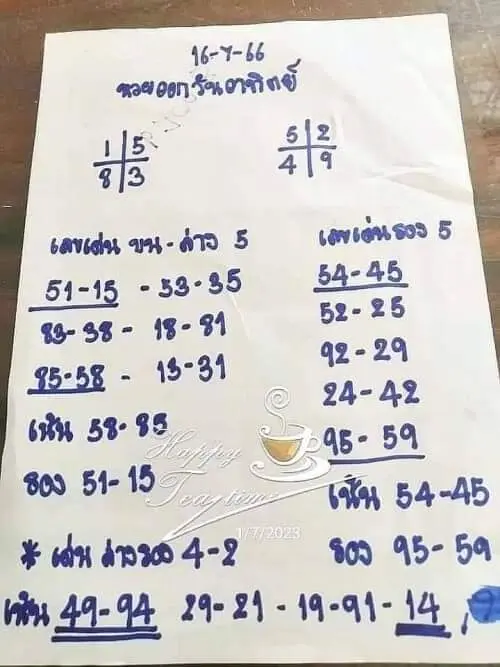 16-7-66
หวยออกวันอาทิตย์
1 5
8 3
5 2
4 9
เลขเด่น บน-ล่าง 5
51-15 - 53-35
83-38 - 18-81
85-58 - 13-31
เน้น 58-85
รอง 51-15
เลขเด่นรอง 5
54-45
52-25
92-29
24-42
95-59
เน้น 54-45
รอง 95-59
* เด่น ล่างรอง 4-2
เน้น 49-94 29-21-19-91-14,
Happy
Tea time
1/7/2023